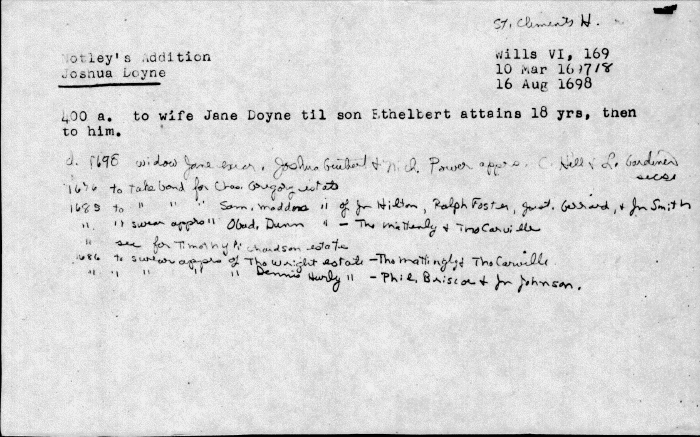 St. Clements H.
Notley's Addition
Joshua Doyne
Wills VI, 169
10 Mar 1697/8
16 Aug 1698
400 a. to wife Jane Doyne til son Ethelbert attains 18 yrs, then
to him.
d. 1698 widow Jane exec. Joshua Guibert & Nich. Power apprs. C. Hill & L. Gardiner
secs
1676 to take bond for Chas Gregory estate
1685 to " " " Sam. Maddox " of Jn Hilton, Ralph Foster, Just. Gerrard, & Jn Smith
" " swear apprs " Obad. Dunn " - Tho Mattenly & Tho Carville
" sec for Timothy Richardson estate
1686 to swear apprs of Tho Wright estate - Tho Mattingly & Tho Carville
" " " " " Dennis Hurly " - Phil. Briscoe & Jn Johnson.